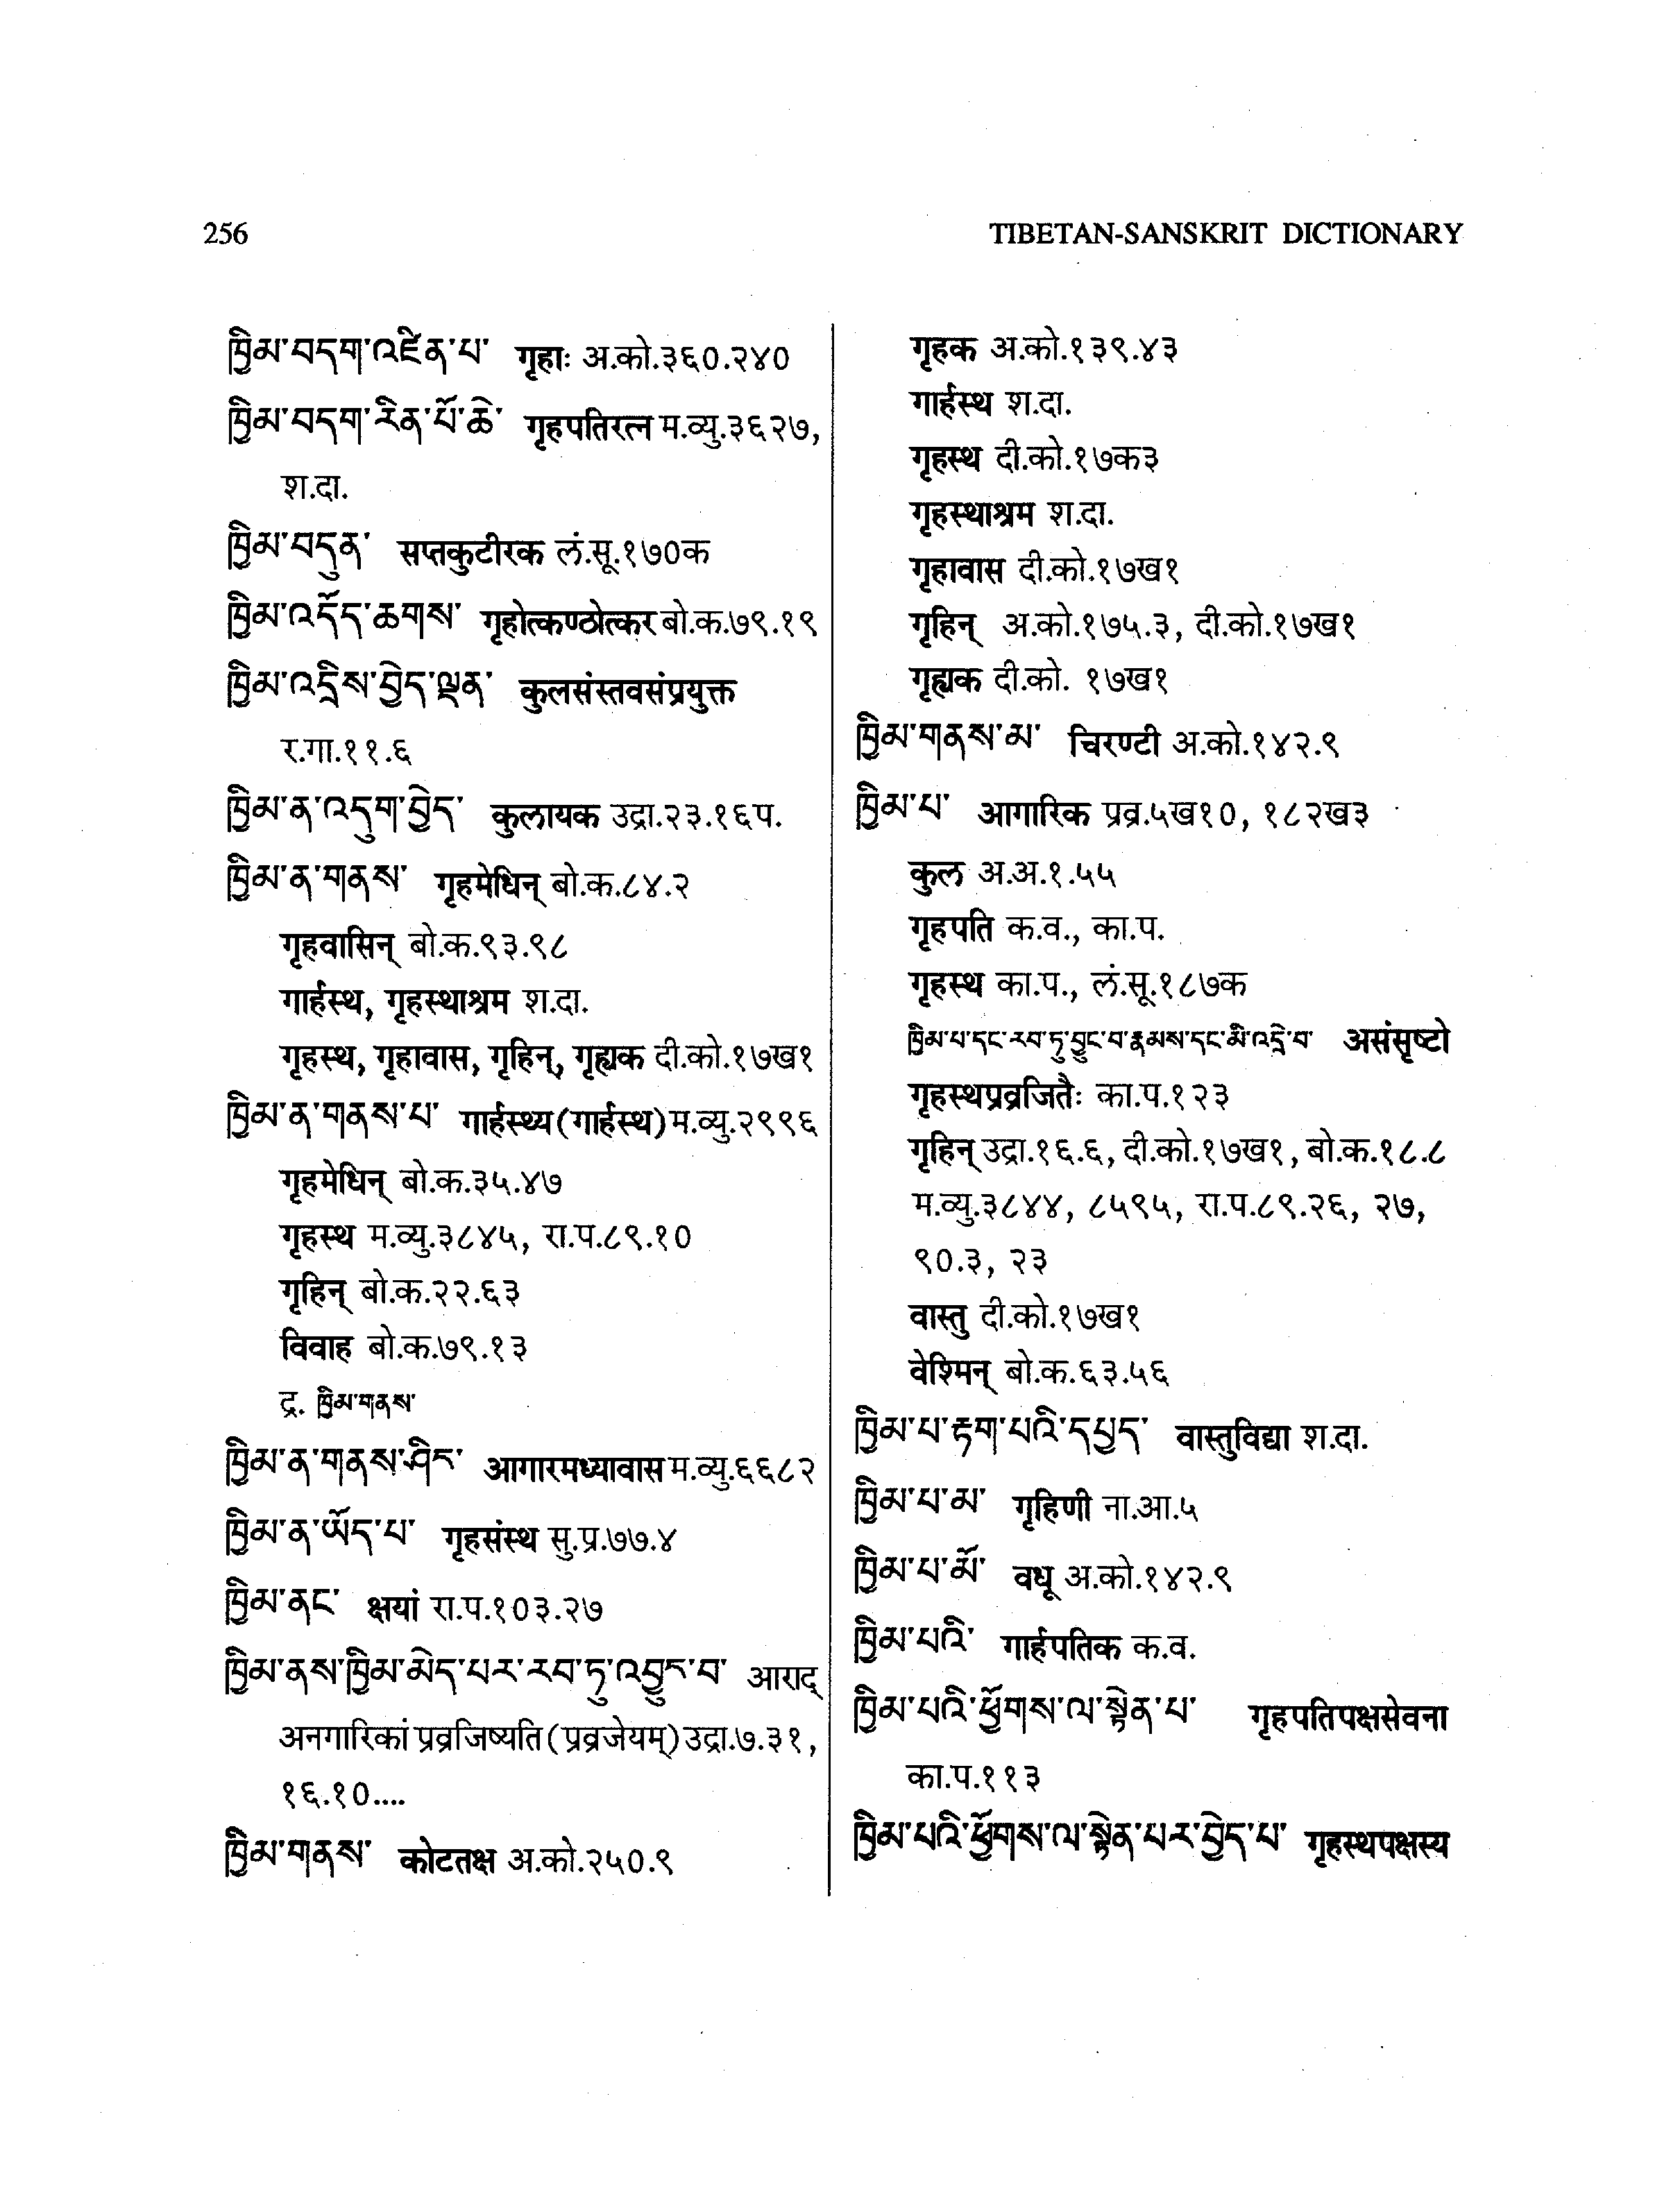 256
TIBETAN-SANSKRIT DICTIONARY
ཁྱིམ་བདག་འཛིན་པ་ गृहाः अ.को.३६०.२४०
ཁྱིམ་བདག་རིན་པོ་ཆེ་ गृहपतिरत्न म.व्यु.३६२७,
श.दा.
ཁྱིམ་བདུན་ सप्तकुटीरक लं.सू.१७०क
ཁྱིམ་འདོད་ཆགས་ गृहोत्कण्ठोत्कर बो.क.७९.१९
ཁྱིམ་འདྲིས་བྱེད་ལྡན་ कुलसंस्तवसंप्रयुक्त
र.गा.११.६
ཁྱིམ་ན་འདུག་བྱེད་ कुलायक उद्रा.२३.१६प.
ཁྱིམ་ན་གནས་ गृहमेधिन् बो.क.८४.२
गृहवासिन् बो.क.९३.९८
गार्हस्थ, गृहस्थाश्रम श.दा.
गृहस्थ, गृहावास, गृहिन्, गृह्यक दी.को.१७ख१
ཁྱིམ་ན་གནས་པ་ गार्हस्थ्य (गार्हस्थ) म.व्यु.२९९६
गृहमेधिन् बो.क.३५.४७
गृहस्थ म.व्यु.३८४५, रा.प.८९.१०
गृहिन् बो.क.२२.६३
विवाह बो.क.७९.१३
द्र. ཁྱིམ་གནས་
ཁྱིམ་ན་གནས་ཤིང་ आगारमध्यावास म.व्यु.६६८२
ཁྱིམ་ན་ཡོད་པ་ गृहसंस्थ सु.प्र.७७.४
ཁྱིམ་ནང་ क्षयां रा.प.१०३.२७
ཁྱིམ་ནས་ཁྱིམ་མེད་པར་རབ་ཏུ་འབྱུང་བ་ आराद्
अनगारिकां प्रव्रजिष्यति (प्रव्रजेयम्) उद्रा.७.३१,
१६.१०....
ཁྱིམ་གནས་ कोटतक्ष अ.को.२५०.९
गृहक अ.को.१३९.४३
गार्हस्थ श.दा.
गृहस्थ दी.को.१७क३
गृहस्थाश्रम श.दा.
गृहावास दी.को.१७ख१
गृहिन् अ.को.१७५.३, दी.को.१७ख१
गृह्यक दी.को. १७ख१
ཁྱིམ་གནས་མ་ चिरण्टी अ.को.१४२.९
ཁྱིམ་པ་ आगारिक प्रव्र.५ख१०, १८२ख३
कुल अ.अ.१.५५
गृहपति क.व., का.प.
गृहस्थ का.प., लं.सू.१८७क
ཁྱིམ་པ་དང་རབ་ཏུ་བྱུང་བ་རྣམས་དང་མི་འདྲེ་བ་ असंसृष्टो
गृहस्थप्रव्रजितैः का.प.१२३
गृहिन् उद्रा.१६.६, दी.को.१७ख१, बो.क.१८.८
म.व्यु.३८४४, ८५९५, रा.प.८९.२६, २७,
९०.३, २३
वास्तु दी.को.१७ख१
वेश्मिन् बो.क.६३.५६
ཁྱིམ་པ་རྟག་པའི་དཔྱད་ वास्तुविद्या श.दा.
ཁྱིམ་པ་མ་ गृहिणी ना.आ.५
ཁྱིམ་པ་མོ་ वधू अ.को.१४२.९
ཁྱིམ་པའི་ गार्हपतिक क.व.
ཁྱིམ་པའི་ཕྱོགས་ལ་སྟེན་པ་ गृहपतिपक्षसेवना
का.प.११३
ཁྱིམ་པའི་ཕྱོགས་ལ་སྟེན་པར་བྱེད་པ་ गृहस्थपक्षस्य